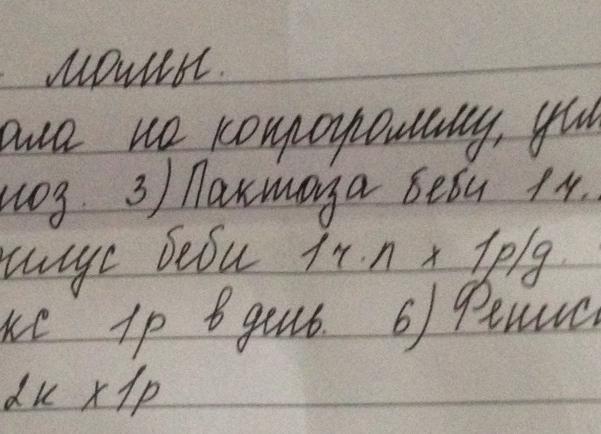 мамы.
ала на копрограмму, ум
ноз. 3) Лактаза беби 1 ч.
илус беби 1 ч.л х 1р/д.
кс 1р в день. 6) Фенис
2к х 1р